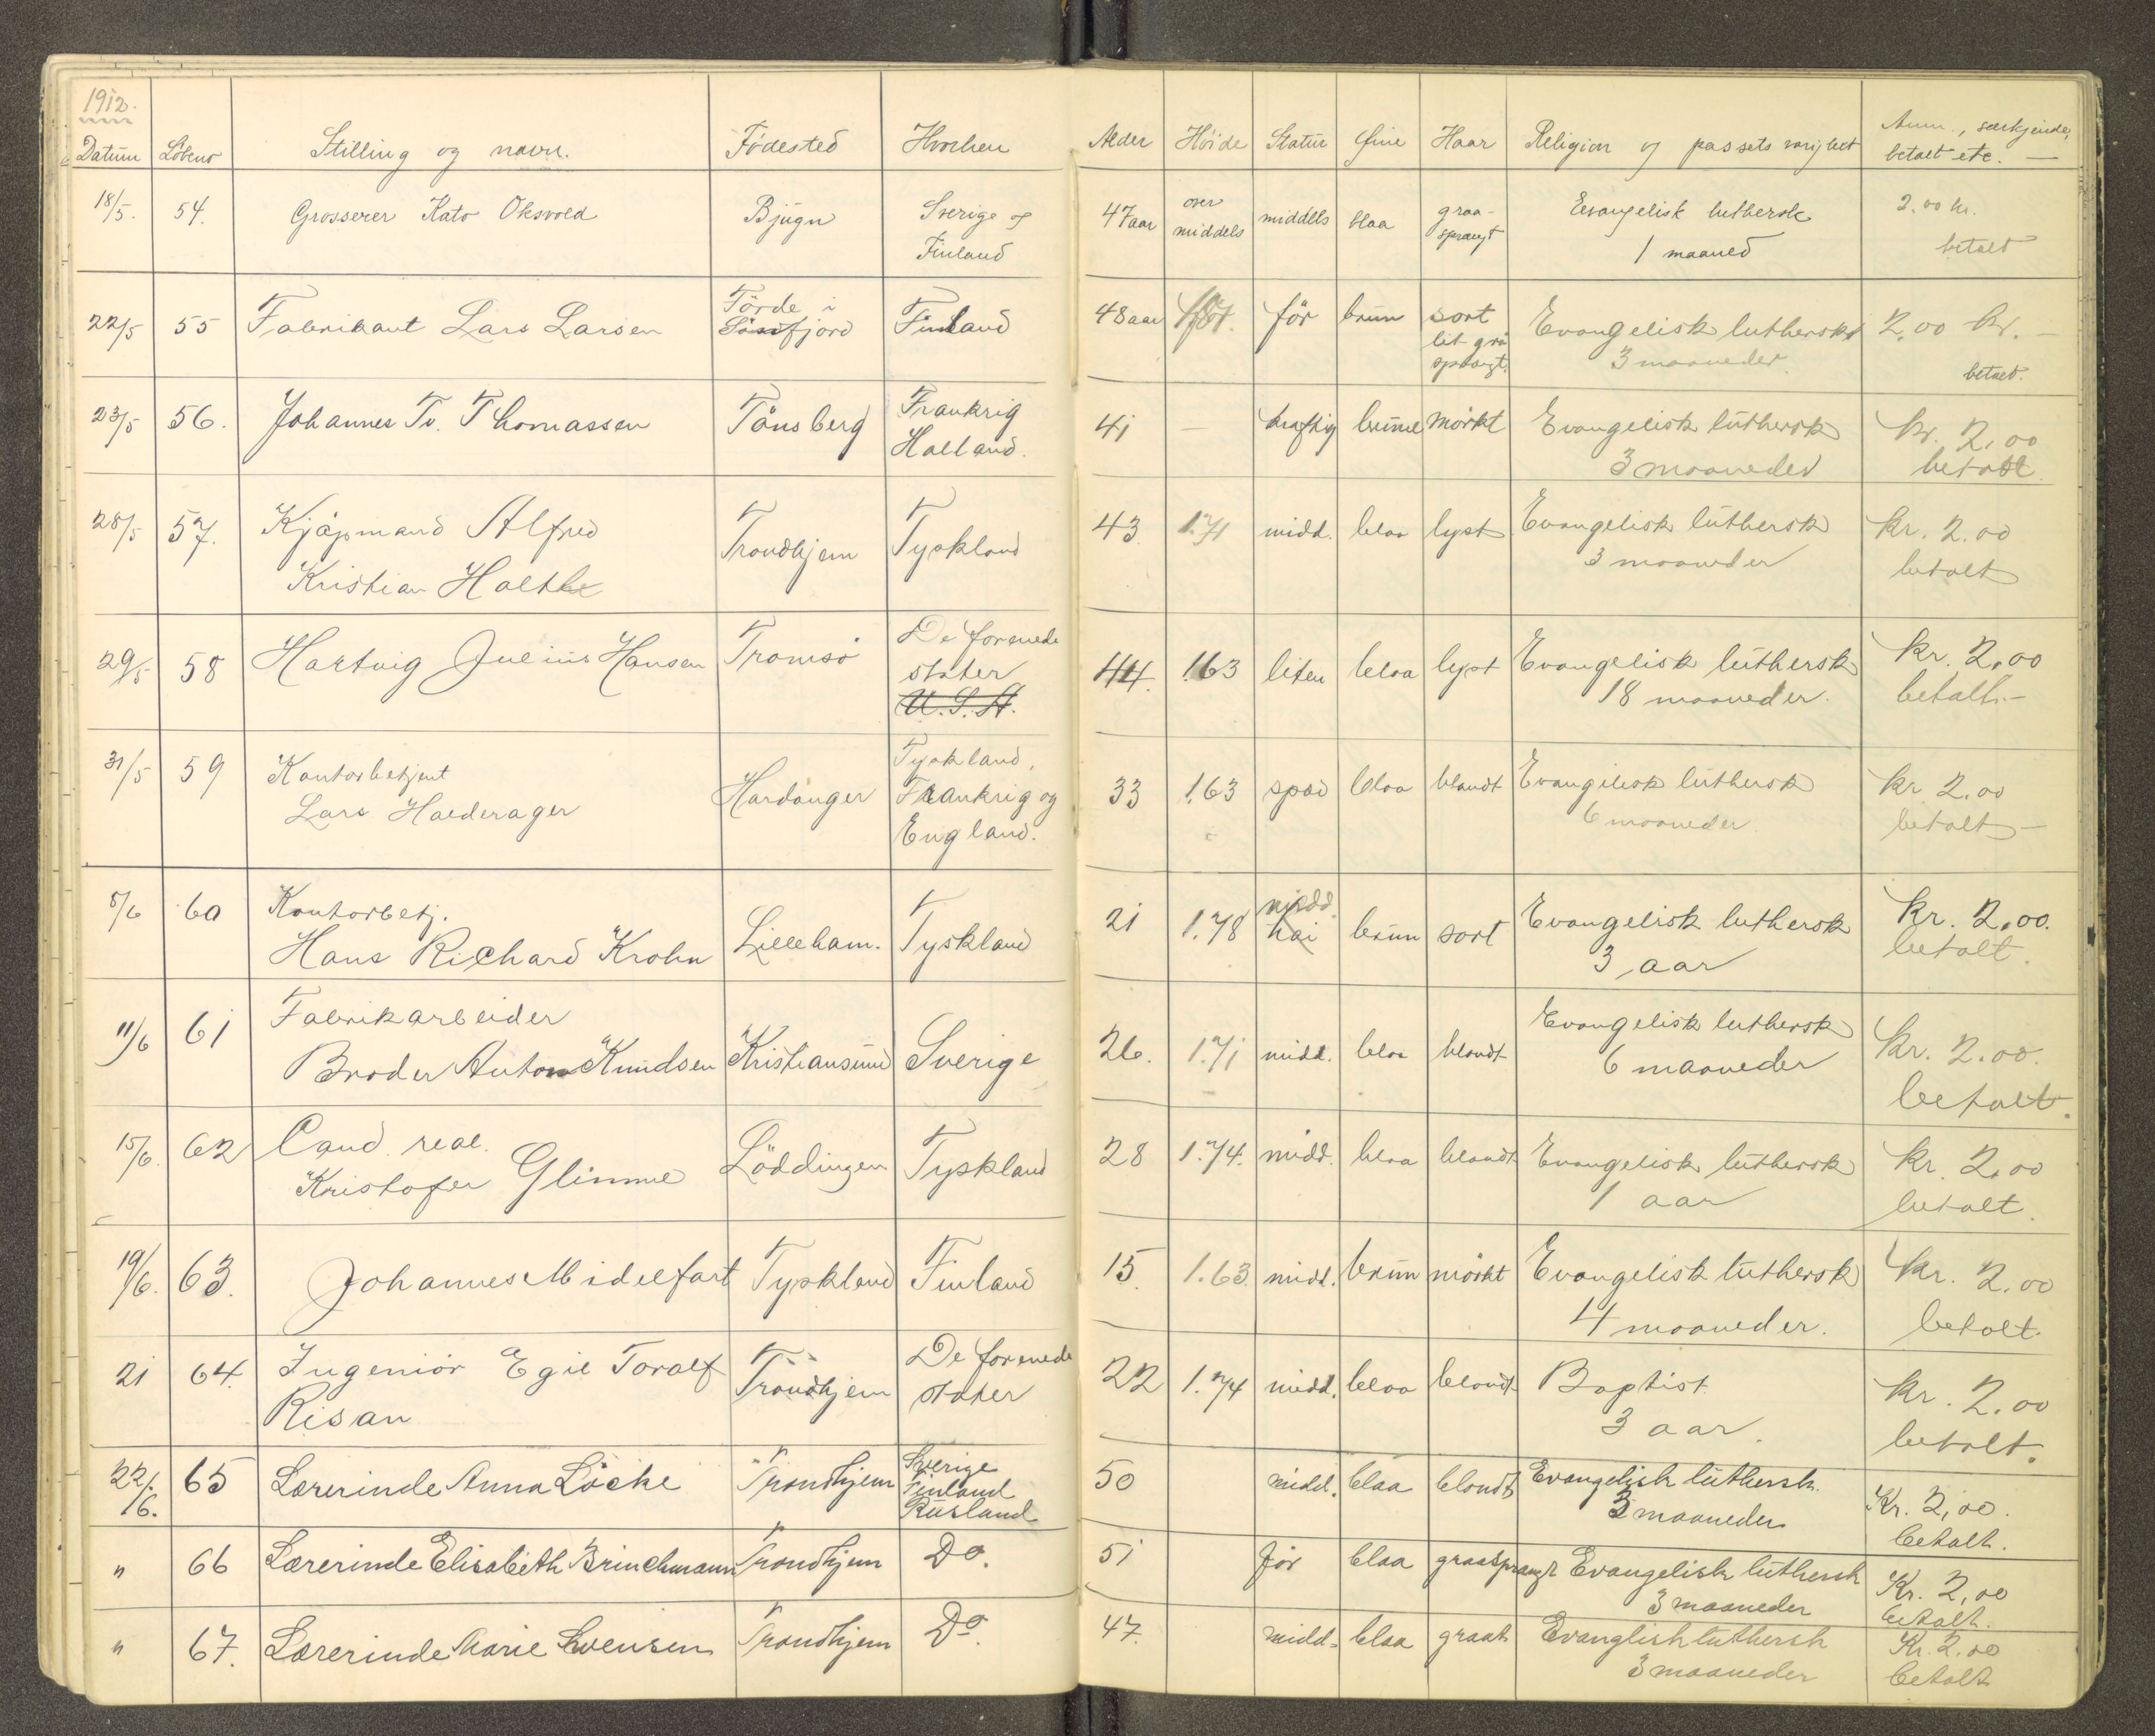 1912.
Datum Löbeno Stilling og navn. Födested Hvorhen Alder Höide Statur Øine Haar Religion og passets varighet Anm., særkjende, betalt etc. —
18/5. 54. Grosserer Kato Oksvold Bjugn Sverige og Finland 47 aar over middels middels blaa graa-sprængt Evangelisk luthersk 1 maaned 2.00 kr. betalt
22/5 55 Fabrikant Lars Larsen Förde i Söndfjord Finland 48 aar för brun sort let grå sprængt. Evangelisk luthersk 3 maaneder. 2,00 kr. — betalt.
23/5 56. Johannes Tv. Thomassen Tönsberg Frankrig Holland. 41 — kraftig brune mörkt Evangelisk luthersk 3 maaneder kr. 2,00 betalt.
28/5 57. Kjöpmand Alfred Kristian Holthe Trondhjem Tyskland 43 1.71 midd. blaa lyst Evangelisk luthersk 3 maaneder kr. 2.00 betalt
29/5 58 Hartvig Julius Hansen Tromsö De forenede stater U.S.A. 44. 1.63 liten blaa lyst Evangelisk luthersk 18 maaneder. kr. 2,00 betalt. —
31/5 59 Kontorbetjent Lars Halderager Hardanger Tyskland, Frankrig og England. 33 1.63 spæd blaa blondt Evangelisk luthersk 6 maaneder kr 2.00 betalt —
5/6 60 Kontorbetj. Hans Richard Krohn Lilleham. Tyskland 21 1.78 midd. høi brun sort Evangelisk luthersk 3 aar kr. 2,00. betalt.
11/6 61 Fabrikarbeider Broder Anton Knudsen Kristiansund Sverige 26. 1.71 midd. blaa blondt Evangelisk luthersk 6 maaneder kr. 2.00. betalt.
15/6. 62 Cand. real. Kristofer Glimme Löddingen Tyskland 28 1.74. midd. blaa blondt Evangelisk luthersk 1 aar kr. 2,00 betalt.
19/6. 63. Johannes Midelfart Tyskland Finland 15. 1.63 midd. brun mörkt Evangelisk luthersk 4 maaneder. kr. 2,00 betalt.
21 64. Ingeniör Egil Toralf Risan Trondhjem De forenede stater 22 1.74 midd. blaa blondt Baptist 3 aar. kr. 2.00 betalt.
22/6. 65 Lærerinde Anna Löcke Trondhjem Sverige Finland Rusland 50 midd. blaa blondt Evangelisk luthersk. 3 maaneder Kr. 2,00. betalt.
" 66 Lærerinde Elisabeth Brinchmann Trondhjem Do. 51 för blaa graasprængt Evangelisk luthersk 3 maaneder Kr. 2,00 betalt.
" 67. Lærerinde Marie Svensen Trondhjem Do. 47. midd. blaa graat Evanglisk luthersk 3 maaneder Kr. 2.00 betalt